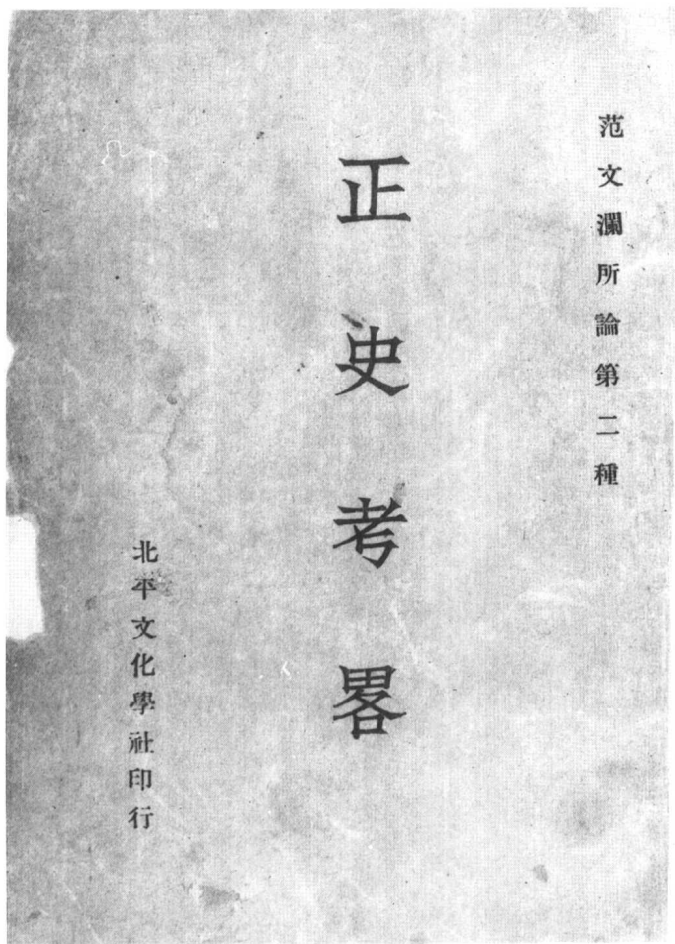 范文瀾所論第二種
正史考畧
北平文化學社印行